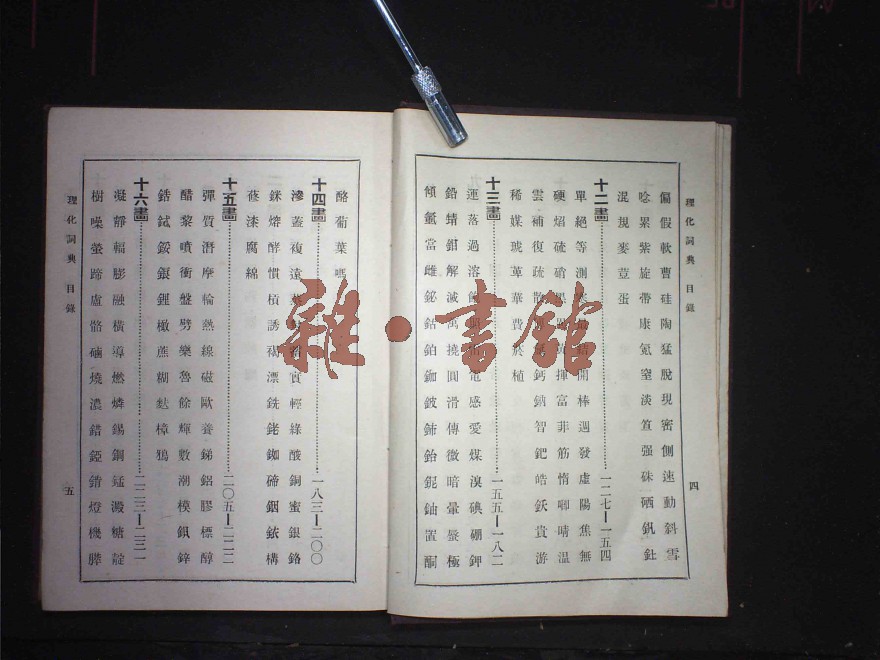 理化詞典 目錄
四
偏假軟曹硅陶猛脫現密側速動斜雪
唸累紫旋帶康氪窒淡笡强硃硒釩釷
混規麥荳蛋
十二畫 一二七—一五四
單絕等測 開棒週發虛陽焦無
硬焰硫硝 揮富菲筋惰唧晴溫
雲補復疏散 鈣鈉智鈀皓鈥貴游
稀媒琥萆華費菸植
十三畫 一五五—一八二
運落過溶 電感愛煤溴碘硼鉀
鉛蜻鉗解滅 撓圓滑傳微暗暈裂極
傾氬當雌鉍鈷鉑鉫鈹鈰鉿鈮鈾置酮
酪葡葉嗎
十四畫 一八三—二〇〇
滲蓋複遠 實輕綠酸銅蜜銀鉻
銤熔酵慣槓誘 漂銑銠銣碲銦銥構
蓚漆腐綿
十五畫 二〇五—二二二
彈質潛摩輪熱線磁歐養銻鋁膠標醇
醋黎噴衝盤劈樂魯餘輝數潮模鋇鋅
鋯鋱銨鋃鋰橄蔗糊麩樟鴉
十六畫 二二三—二三一
凝靜輻膨融橫導燃燐錫鋼錳澱糖靛
樹噪螢蹄盧骼硇燒濃錯錏錆燈機膵
理化詞典 目錄
五
雜·書館